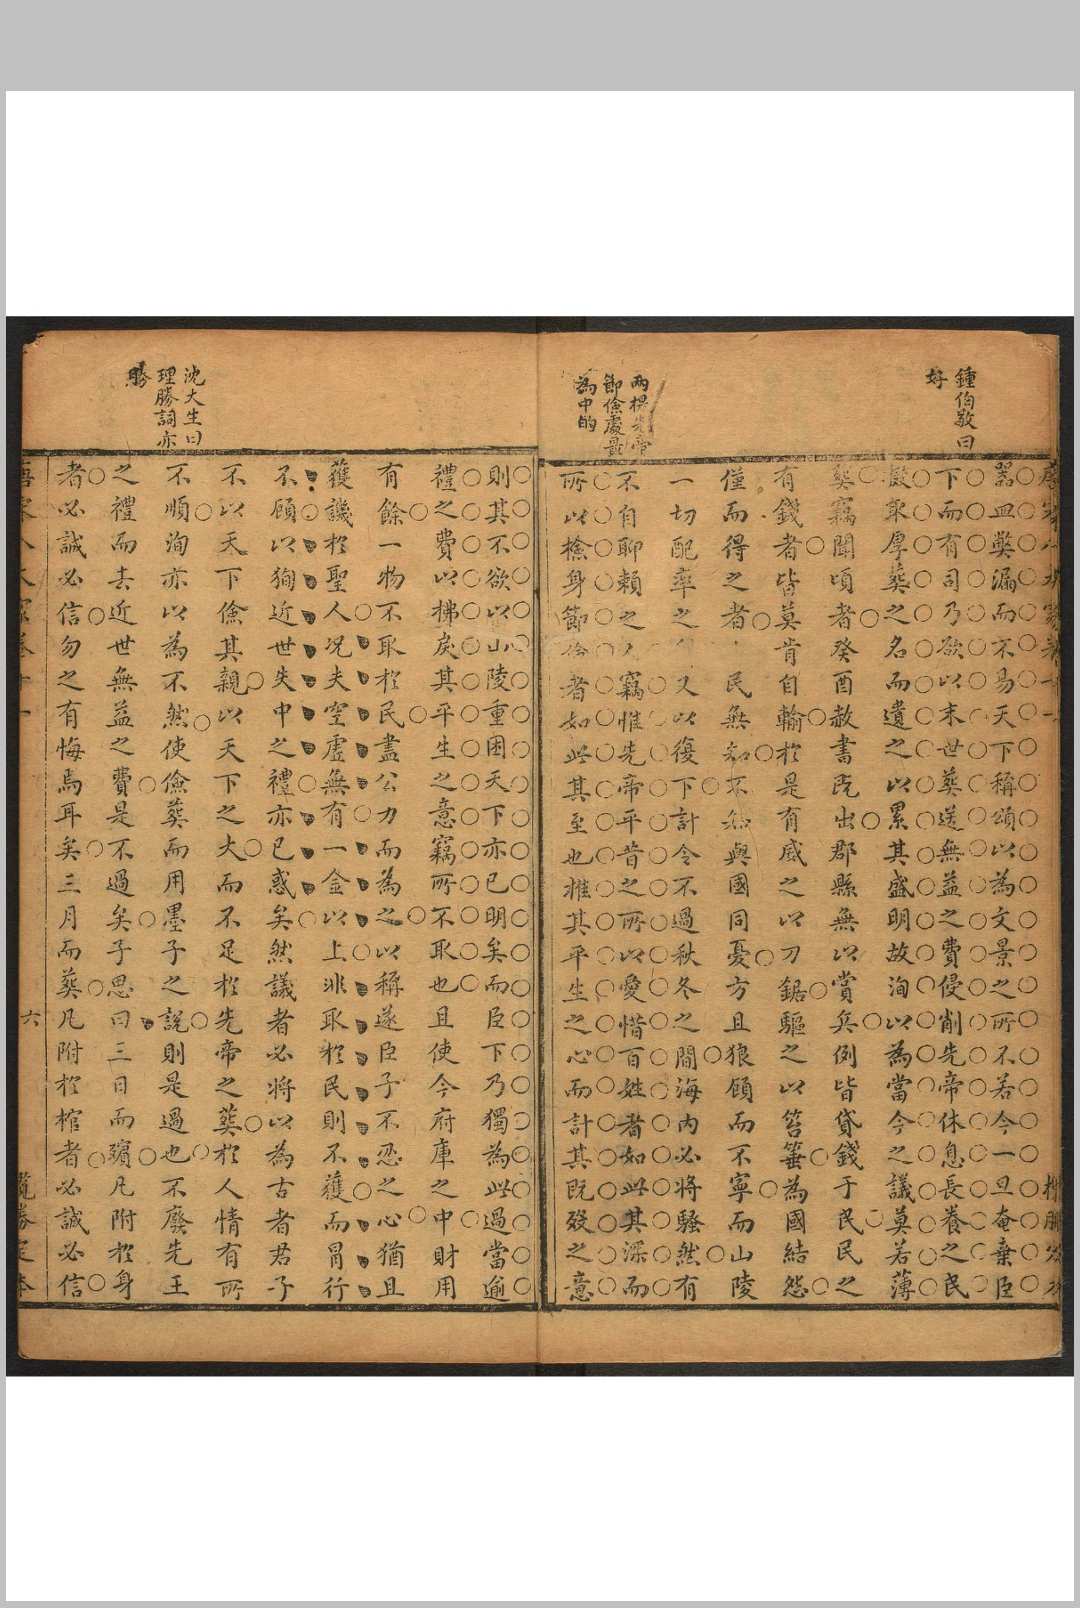 鍾伯敬曰
好
器皿弊漏而不易天下稱頌以為文景之所不若今一旦奄棄臣
下而有司乃欲以末世葬送無益之費侵削先帝休息長養之民
掇取厚葬之名而遺之以累其盛明故洵以為當今之議莫若薄
葬竊聞頃者癸酉赦書既出郡縣無以賞兵例皆貸錢于民民之
有錢者皆莫肯自輸於是有威之以刀鋸驅之以笞箠為國結怨
僅而得之者 民無知不 與國同憂方且狼顧而不寧而山陵
一切配率之 又以復下計今不過秋冬之間海內必將騷然有
不自聊賴之人竊惟先帝平昔之所以愛惜百姓者如此其深而
所以檢身節儉者如此其至也推其平生之心而計其既歿之意
兩提先帝
節儉處最
為中的
則其不欲以山陵重困天下亦已明矣而臣下乃獨為此過當逾
禮之費以拂戾其平生之意竊所不取也且使今府庫之中財用
有餘一物不取於民盡公力而為之以稱遂臣子不忍之心猶且
獲譏於聖人况夫空虛無有一金以上非取於民則不獲而冒行
不顧以狥近世失中之禮亦已惑矣然議者必將以為古者君子
不以天下儉其親以天下之大而不足於先帝之葬於人情有所
不順洵亦以為不然使儉葬而用墨子之說則是過也不廢先王
之禮而去近世無益之費是不過矣子思曰三日而殯凡附於身
者必誠必信勿之有悔焉耳矣三月而葬凡附於棺者必誠必信
沈大生曰
理勝詞亦
勝
六